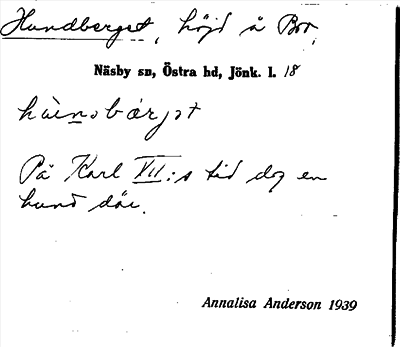 Hundberget, höjd å Bro,
Näsby sn, Östra hd, Jönk. l. 18
På Karl XII:s tid dog en
hund där.
Annalisa Anderson 1939